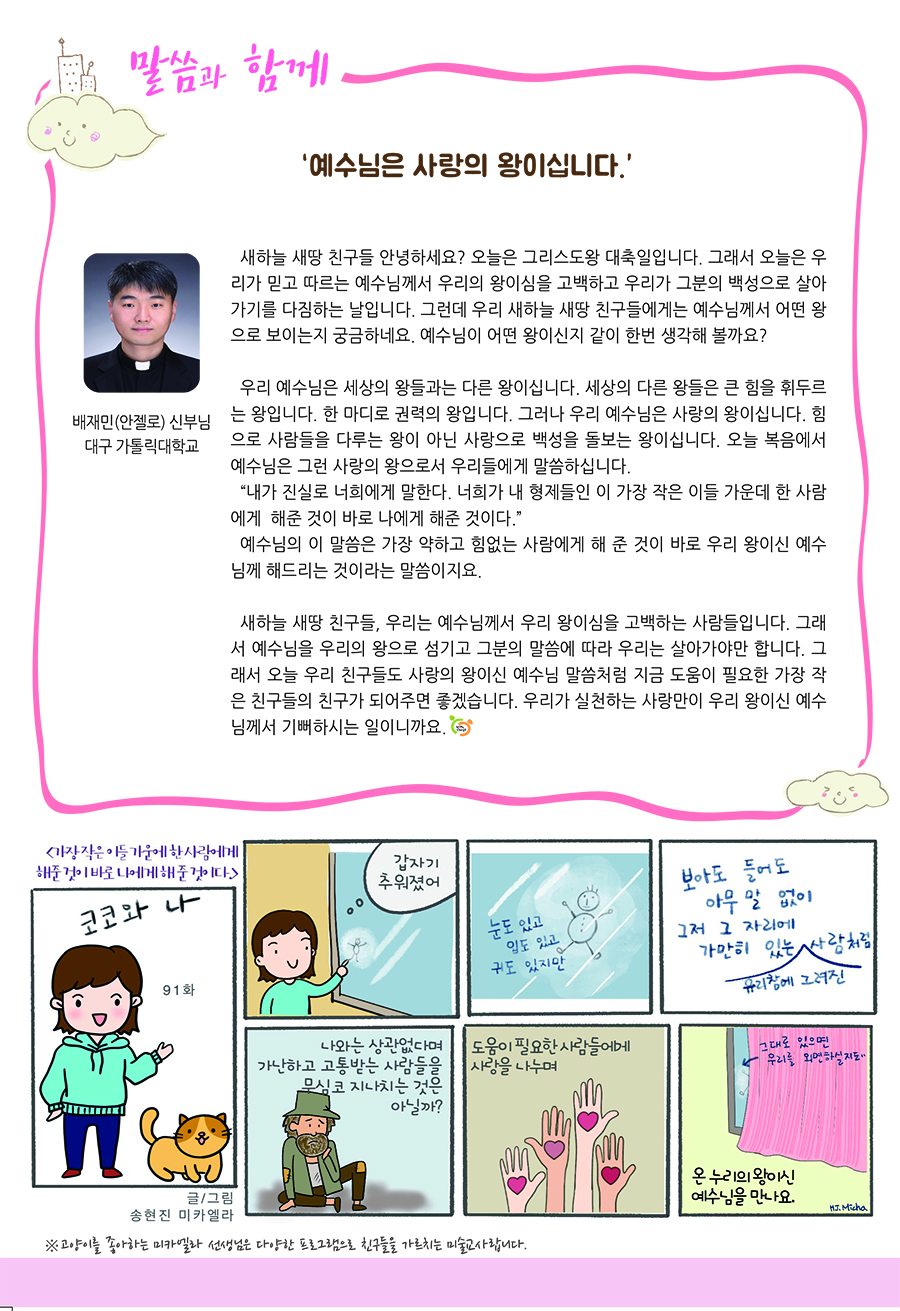 말씀과 함께
‘예수님은 사랑의 왕이십니다.’
새하늘 새땅 친구들 안녕하세요? 오늘은 그리스도왕 대축일입니다. 그래서 오늘은 우
리가 믿고 따르는 예수님께서 우리의 왕이심을 고백하고 우리가 그분의 백성으로 살아
가기를 다짐하는 날입니다. 그런데 우리 새하늘 새땅 친구들에게는 예수님께서 어떤 왕
으로 보이는지 궁금하네요. 예수님이 어떤 왕이신지 같이 한번 생각해 볼까요?
배재민(안젤로) 신부님
대구 가톨릭대학교
우리 예수님은 세상의 왕들과는 다른 왕이십니다. 세상의 다른 왕들은 큰 힘을 휘두르
는 왕입니다. 한 마디로 권력의 왕입니다. 그러나 우리 예수님은 사랑의 왕이십니다. 힘
으로 사람들을 다루는 왕이 아닌 사랑으로 백성을 돌보는 왕이십니다. 오늘 복음에서
예수님은 그런 사랑의 왕으로서 우리들에게 말씀하십니다.
“내가 진실로 너희에게 말한다. 너희가 내 형제들인 이 가장 작은 이들 가운데 한 사람
에게 해준 것이 바로 나에게 해준 것이다.”
예수님의 이 말씀은 가장 약하고 힘없는 사람에게 해 준 것이 바로 우리 왕이신 예수
님께 해드리는 것이라는 말씀이지요.
새하늘 새땅 친구들, 우리는 예수님께서 우리 왕이심을 고백하는 사람들입니다. 그래
서 예수님을 우리의 왕으로 섬기고 그분의 말씀에 따라 우리는 살아가야만 합니다. 그
래서 오늘 우리 친구들도 사랑의 왕이신 예수님 말씀처럼 지금 도움이 필요한 가장 작
은 친구들의 친구가 되어주면 좋겠습니다. 우리가 실천하는 사랑만이 우리 왕이신 예수
님께서 기뻐하시는 일이니까요.
<가장 작은 이들 가운데 한 사람에게
해준 것이 바로 나에게 해 준 것이다>
코코와 나
91화
글/그림
송현진 미카엘라
갑자기
추워졌어
눈도 있고
입도 있고
귀도 있지만
보아도 들어도
아무 말 없이
그저 그 자리에
가만히 있는 사람처럼
유리창에 그려진
나와는 상관없다며
가난하고 고통받는 사람들을
무심코 지나치는 것은
아닐까?
도움이 필요한 사람들에게
사랑을 나누며
그대로 있으면
우리를 외면하실지도..
온 누리의 왕이신
예수님을 만나요.
H.J.Micha
※고양이를 좋아하는 미카엘라 선생님은 다양한 프로그램으로 친구들을 가르치는 미술교사랍니다.